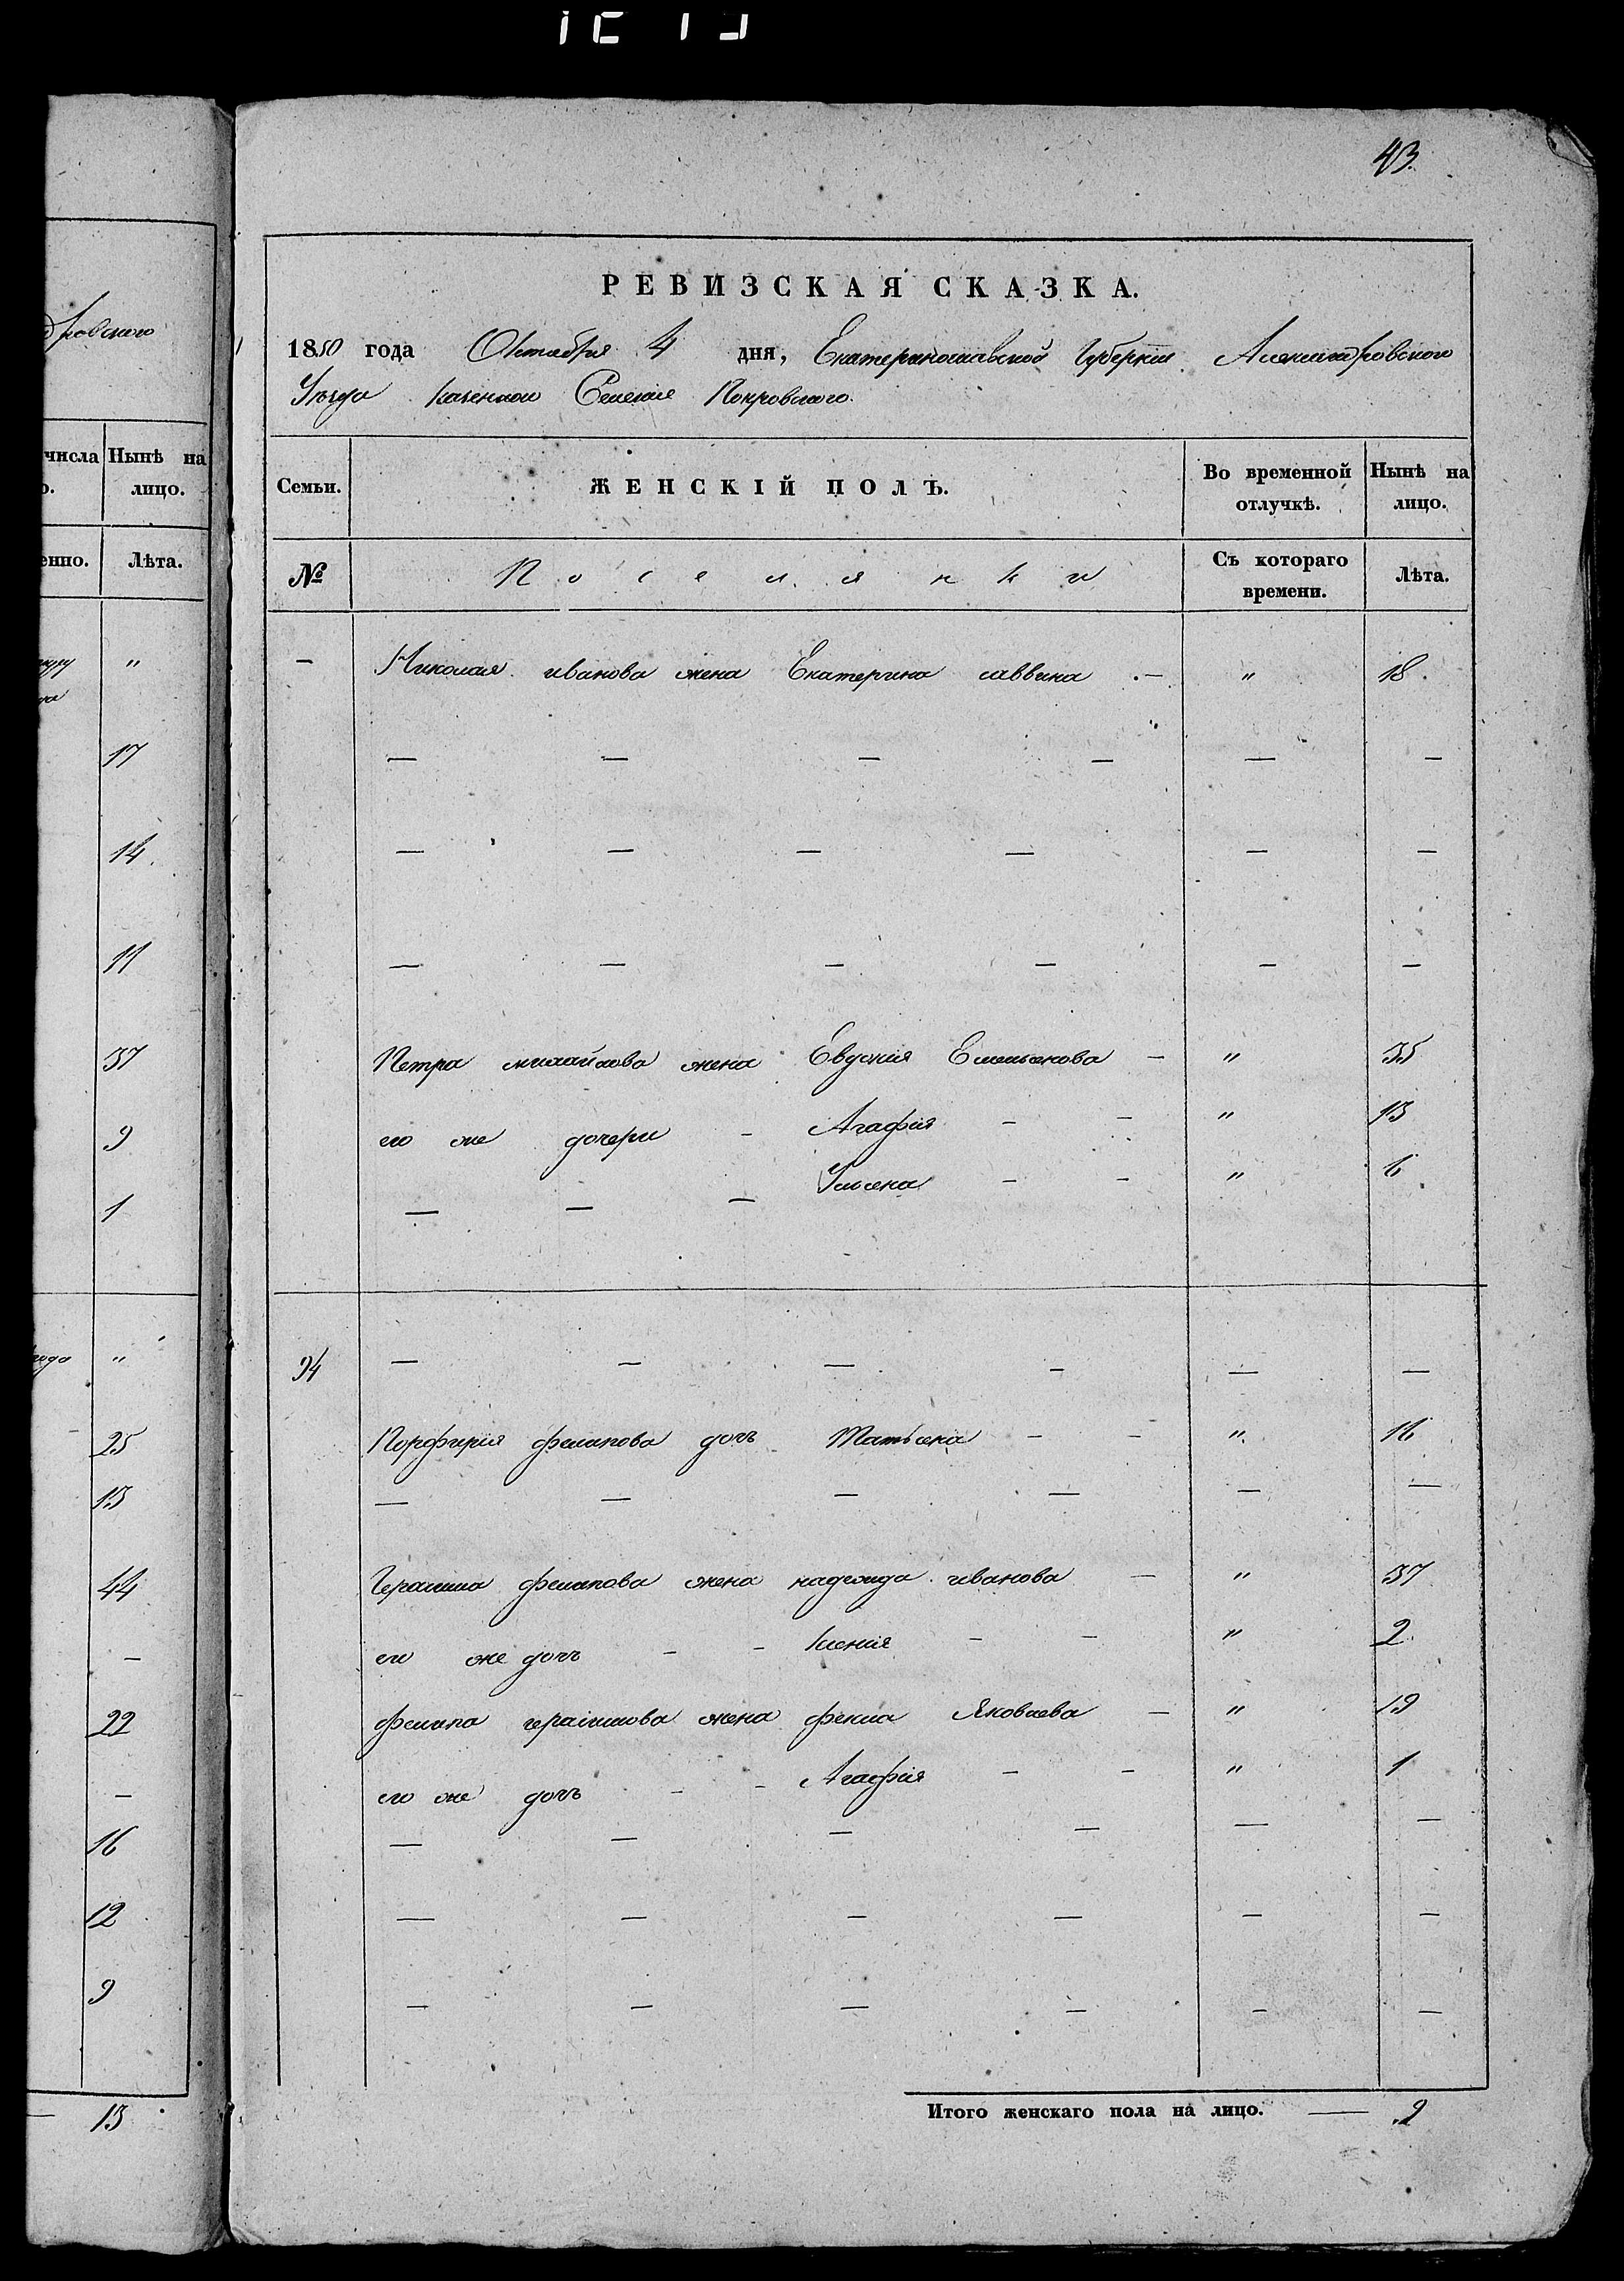 43.
РЕВИЗСКАЯ СКАЗКА.
1850 года Октября 4 дня, Екатеринославской Губернии Александровского
Уѣзда казенного Селения Покровского.
Семьи. ЖЕНСКІЙ ПОЛЪ. Во временной отлучкѣ. Нынѣ на лицо.
№ Поселянки Съ котораго времени. Лѣта.
— Николая иванова жена Екатерина саввина — " 18
— — — — — —
— — — — — —
— — — — — —
Петра михайлова жена Евдокия Емельянова — " 35
его же дочери — Агафія — — " 13
— — — Ульяна — — " 6
94 — — — — — —
Порфирія филипова дочь Татьяна — — " 16
— — — — — —
Герасима филипова жена надежда иванова — " 37
его же дочь — — Ксения — — " 2
филипа герасимова жена фекла Яковлева — " 19
его же дочь — — Агафія — — " 1
— — — — — —
— — — — — —
— — — — — —
Итого женскаго пола на лицо. — 9
дровского
числа Нынѣ на лицо.
енно. Лѣта.
"
17
14
11
37
9
1
года "
25
13
44
—
22
—
16
12
9
— 13